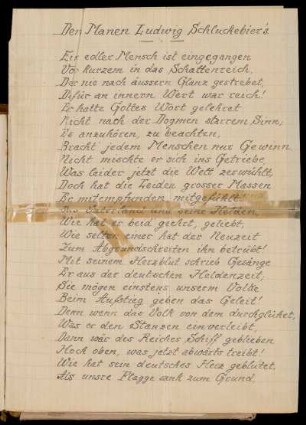 Den Manen Ludwig Schluckebier's
Ein edler Mensch ist eingegangen
Vor kurzem in das Schattenreich,
Der nie nach äussern Glanz gestrebet,
Dafür an innern Wert war reich!
Er hatte Gottes Wort gelehret
Nicht nach der Dogmen starrem Sinn,
Es anzuhören, zu beachten,
Bracht' jedem Menschen nur Gewinn.
Nicht mischte er sich ins Getriebe,
Was leider jetzt die Welt zerwühlt,
Doch hat die Leiden grosser Massen
Er mitempfunden, mitgefühlt!
Das Vaterland und seine Helden,
Wie hat er beid geehrt, geliebt,
Wie selten einer hat der Neuzeit
Zum Abgrundschreiten ihn betrübt!
Mit seinem Herzblut schrieb Gesänge
Er aus der deutschen Heldenzeit,
Sie mögen einstens unserm Volke
Beim Aufstieg geben das Geleit!
Denn wenn die Volk von dem durchglühet,
Was er den Stanzen einverleibt,
Dann wär des Reiches Schiff geblieben
Hoch oben, was jetzt abwärts treibt!
Wie hat sein deutsches Herz geblutet,
Als unsre Flagge sank zum Grund,